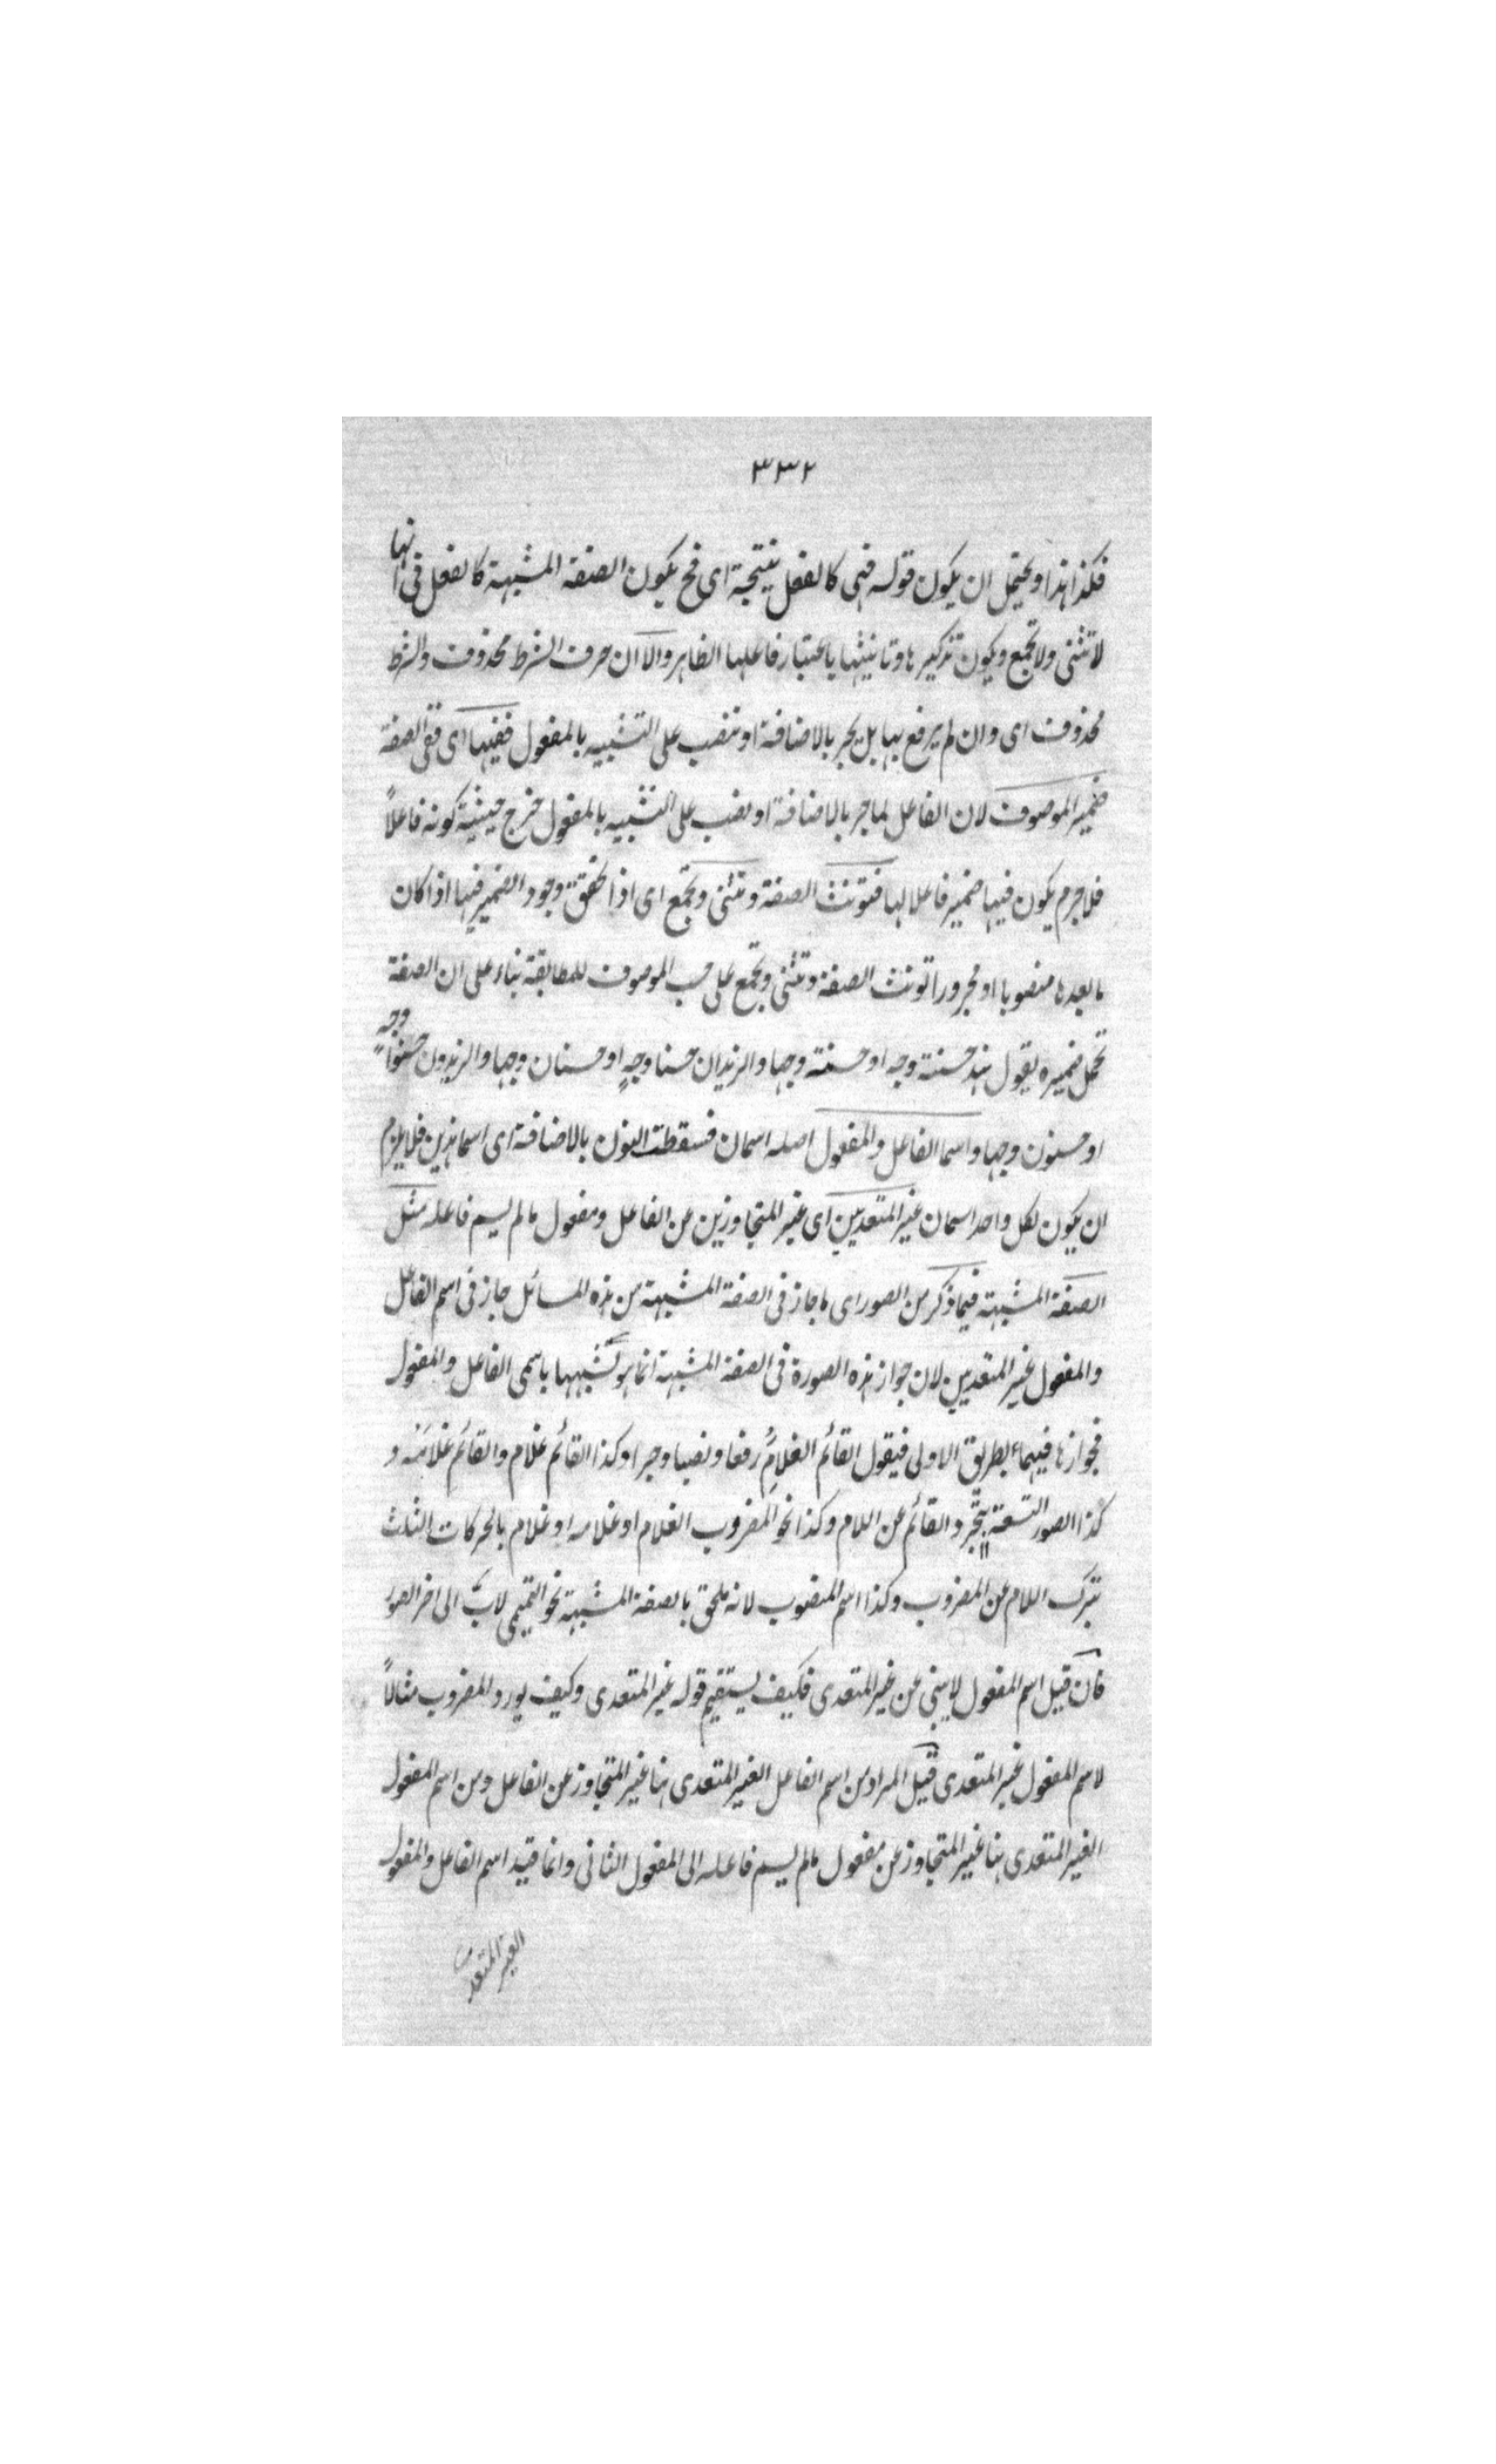 ٣٣٢
فكذا هذا ويحتمل ان يكون قوله فهى كالفعل نتيجة اى فح يكون الصفة المشبهة كالفعل فى انها
لا تثنى ولا تجمع ويكون تذكيرها وتانيثها باعتبار فاعلها الظاهر والا ان حرف الشرط محذوف والشرط
محذوف اى وان لم يرفع بها بل يجر بالاضافة او تنصب على التشبيه بالمفعول ففيها اى ففى الصفة
ضمير الموصوف لان الفاعل لما جر بالاضافة او نصب على التشبيه بالمفعول خرج حيثية كونه فاعلاً
فلا جرم يكون فيها ضمير فاعلا لها فتونث الصفة وتثنى وتجمع اى اذا تحقق وجود الضمير فيها اذا كان
ما بعدها منصوبا او مجرورا تونث الصفة وتثنى وتجمع على حسب الموصوف للمطابقة بناء على ان الصفة
تحمل ضميره يقول هند حسنة وجه او حسنة وجها والزيدان حسنا وجهٍ او حسنان وجها والزيدون حسنوا وجهٍ
او حسنون وجها واسما الفاعل والمفعول اصله اسمان فسقطت النون بالاضافة اى اسما هذين فلا يلزم
ان يكون لكل واحد اسمان غير المتعديين اى غير المتجاوزين عن الفاعل ومفعول مالم يسم فاعله مثل
الصفة المشبهة فيما ذكر من الصور اى ما جاز فى الصفة المشبهة من هذه المسائل جاز فى اسم الفاعل
والمفعول غير المتعديين لان جواز هذه الصورة فى الصفة المشبهة انما هو لشبهها باسمى الفاعل والمفعول
فجوازها فيهما بطريق الاولى فيقول القائم الغلام رفعا ونصبا وجرا وكذا القائم غلام والقائم غلامه و
كذا الصور التسعة بتجرد القائم عن اللام وكذا نحو المضروب الغلام او غلامه او غلام بالحركات الثلث
بترك اللام عن المضروب وكذا اسم المنصوب لانه ملحق بالصفة المشبهة نحو التميمى لاب الى اخر الصور
فان قيل اسم المفعول لا يبنى عن غير المتعدى فكيف يستقيم قوله غير المتعدى وكيف يورد المضروب مثالاً
لاسم المفعول غير المتعدى قيل المراد من اسم الفاعل الغير المتعدى هنا غير المتجاوز عن الفاعل ومن اسم المفعول
الغير المتعدى هنا غير المتجاوز عن مفعول مالم يسم فاعله الى المفعول الثانى وانما قيد اسم الفاعل والمفعول
الغير المتعدى